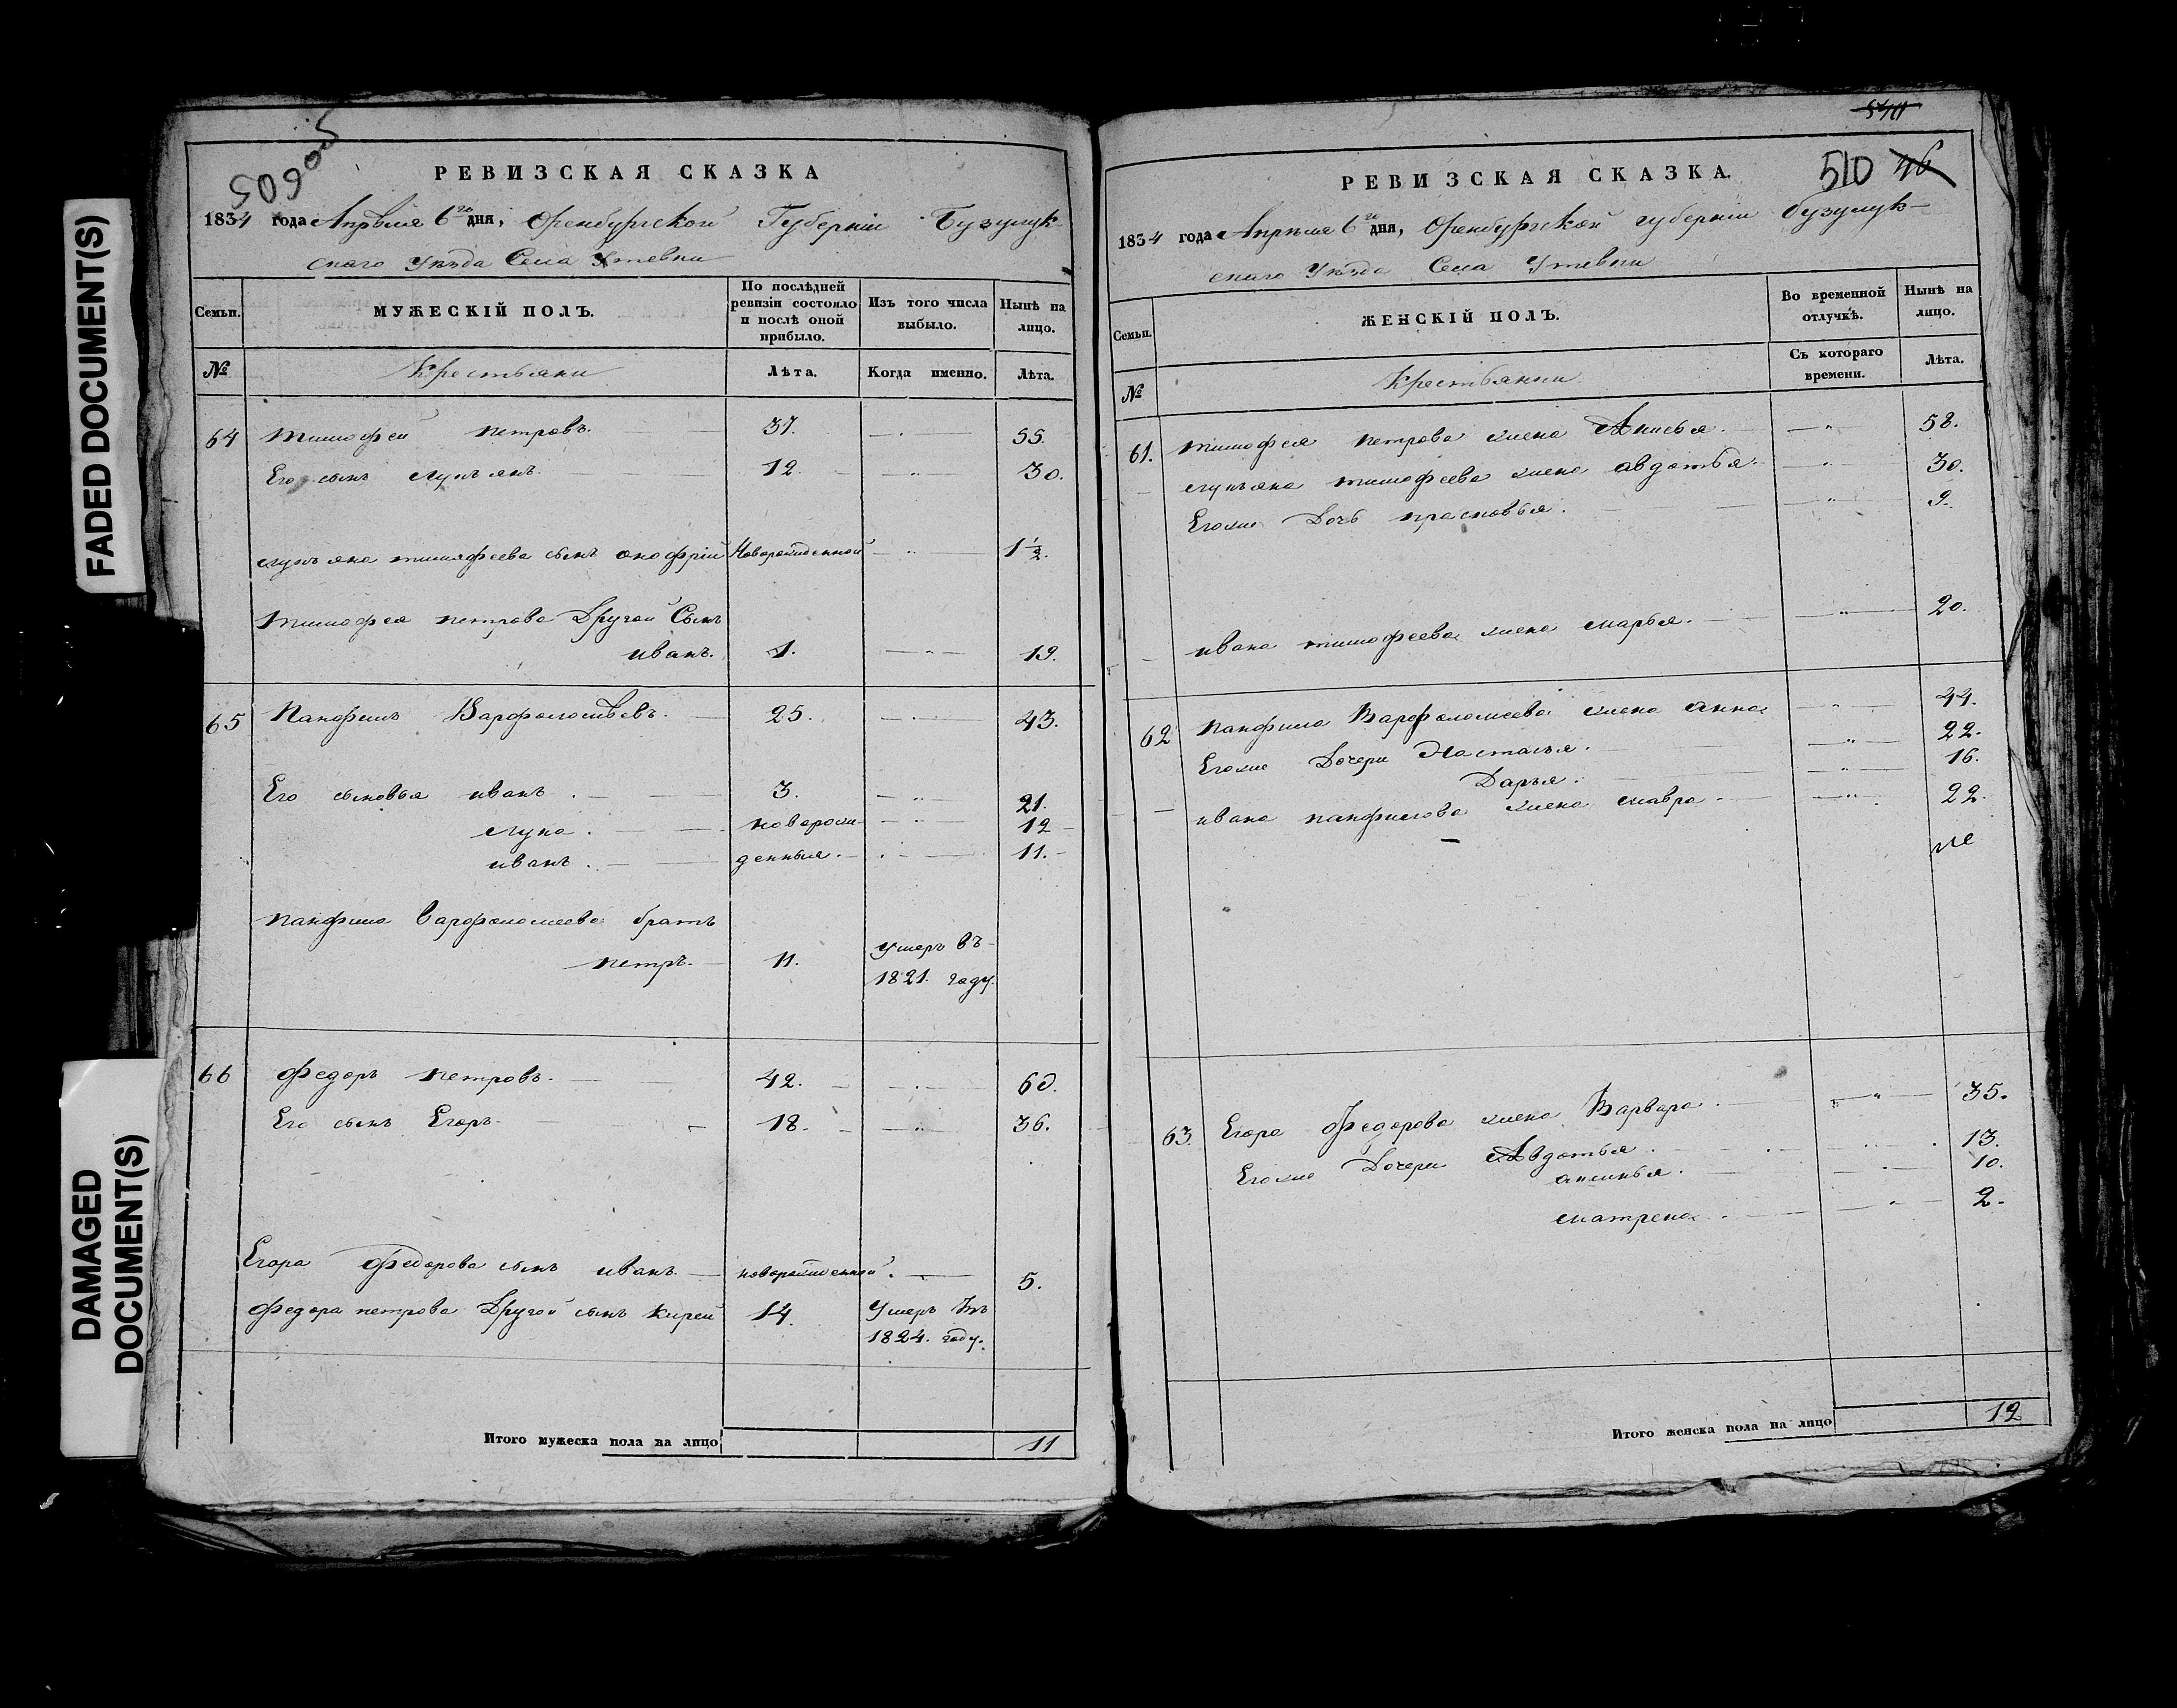 FADED DOCUMENT(S)
DAMAGED
DOCUMENT(S)
509об
РЕВИЗСКАЯ СКАЗКА
1834 года Апрѣля 6го дня, Оренбургской Губерніи Бузулук-
скаго Уѣзда Села Утевки
Семьи.
МУЖЕСКІЙ ПОЛЪ.
По послѣдней ревизіи состояло и послѣ оной прибыло.
Изъ того числа выбыло.
Нынѣ на лицо.
№
Крестьяни
Лѣта.
Когда именно.
Лѣта.
64 Тимофей Петровъ. 37. 55.
Его сынъ Лукъянъ. 12. 30.
Лукъяна Тимофеева сынъ Онофрій Новорожденной 1 1/2.
Тимофея Петрова Другой Сынъ
Иванъ. 1. 19.
65 Панфилъ Варфоломѣевъ. 25. 43.
Его сыновья Иванъ. 3. 21.
Лука. новорож- 12
Иванъ. денныя. 11.
Панфила Варфоломеева братъ
Петръ. 11. Умеръ въ
1821. году.
66 Федоръ Петровъ. 42. 60.
Его сынъ Егоръ. 18. 36.
Егора Федорова сынъ Иванъ новорожденной. 5.
Федора Петрова Другой сынъ Кирей 14. Умеръ въ
1824. году.
Итого мужеска пола на лицо 11
510 46
РЕВИЗСКАЯ СКАЗКА.
1834 года Апрѣля 6го дня, Оренбургской губерніи Бузулук-
скаго Уѣзда Села Утевки
Семьи.
ЖЕНСКІЙ ПОЛЪ.
Во временной отлучкѣ.
Нынѣ на лицо.
№
Крестьянки
Съ котораго времени.
Лѣта.
61. Тимофея Петрова жена Анисья. 58.
Лукъяна Тимофеева жена Авдотья. 30.
Егоже Дочь Прасковья. 9.
Ивана Тимофеева жена Марья. 20.
62 Панфила Варфоломеева жена Анна 44.
Егоже Дочери Настасья. 22.
Дарья. 16.
Ивана Панфилова жена Мавра 22.
63 Егора Федорова жена Варвара. 35.
Егоже Дочери Авдотья. 13.
Аксинья. 10.
Матрена. 2.
Итого женска пола на лицо 12